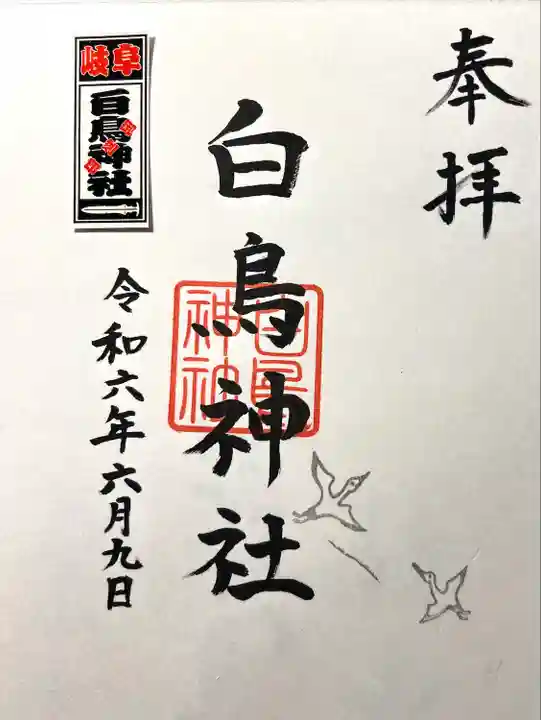 奉拝
白鳥神社
白鳥神社
令和六年六月九日
岐阜
白鳥神社